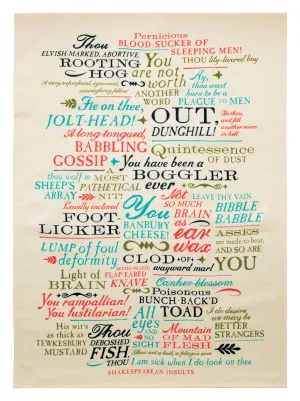 Pernicious
Thou BLOOD-SUCKER OF
SLEEPING MEN!
ELVISH-MARKED, ABORTIVE,
ROOTING HOG
You are not worth
ANOTHER WORD
Thou lily-livered boy
Ay, thou wast born to be a
PLAGUE TO MEN
A very superficial, ignorant, unweighing fellow
Fie on thee,
JOLT-HEAD!
OUT, DUNGHILL!
Go thou, and fill another room in hell
A long-tongued,
BABBLING
GOSSIP
Quintessence
OF DUST
You have been a
BOGGLER
ever
thou wolf in
SHEEP'S
ARRAY
A most
PATHETICAL
NIT!
Not
SO MUCH
BRAIN
as
ear
wax
LEAVE THY VAIN
BIBBLE
BABBLE
Lewdly inclined
FOOT-
LICKER
You
BANBURY
CHEESE!
ASSES
are made to bear,
AND SO ARE
YOU
LUMP of foul
deformity
CLOD of
wayward marl
Light of
BRAIN
FLAP EARED
KNAVE
Canker-blossom
You rampallian!
You fustilarian!
Poisonous
BUNCH-BACK'D
TOAD
All
eyes
AND
NO
SIGHT
I do desire
we may be
BETTER
STRANGERS
His wit's
as thick as
TEWKESBURY
MUSTARD
Thou
DEBOSHED
FISH,
THOU
Mountain
OF MAD
FLESH
Thou art a boil, a plague sore
THOU I am sick when I do look on thee
SHAKESPEAREAN INSULTS